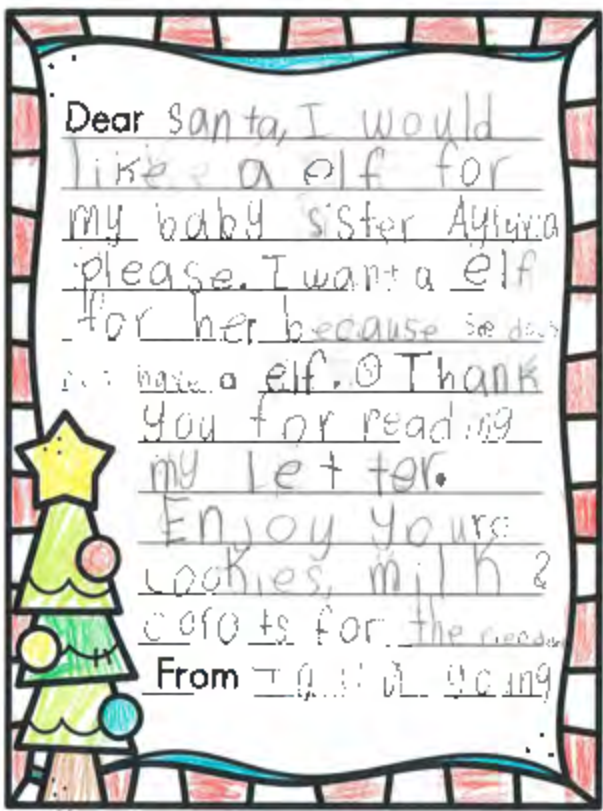 Dear Santa, I would
like a elf for
my baby sister
please. I want a elf
for her because se does
not have a elf. Thank
you for reading
my letter.
Enjoy youre
cookies, milk &
carots for the
From young